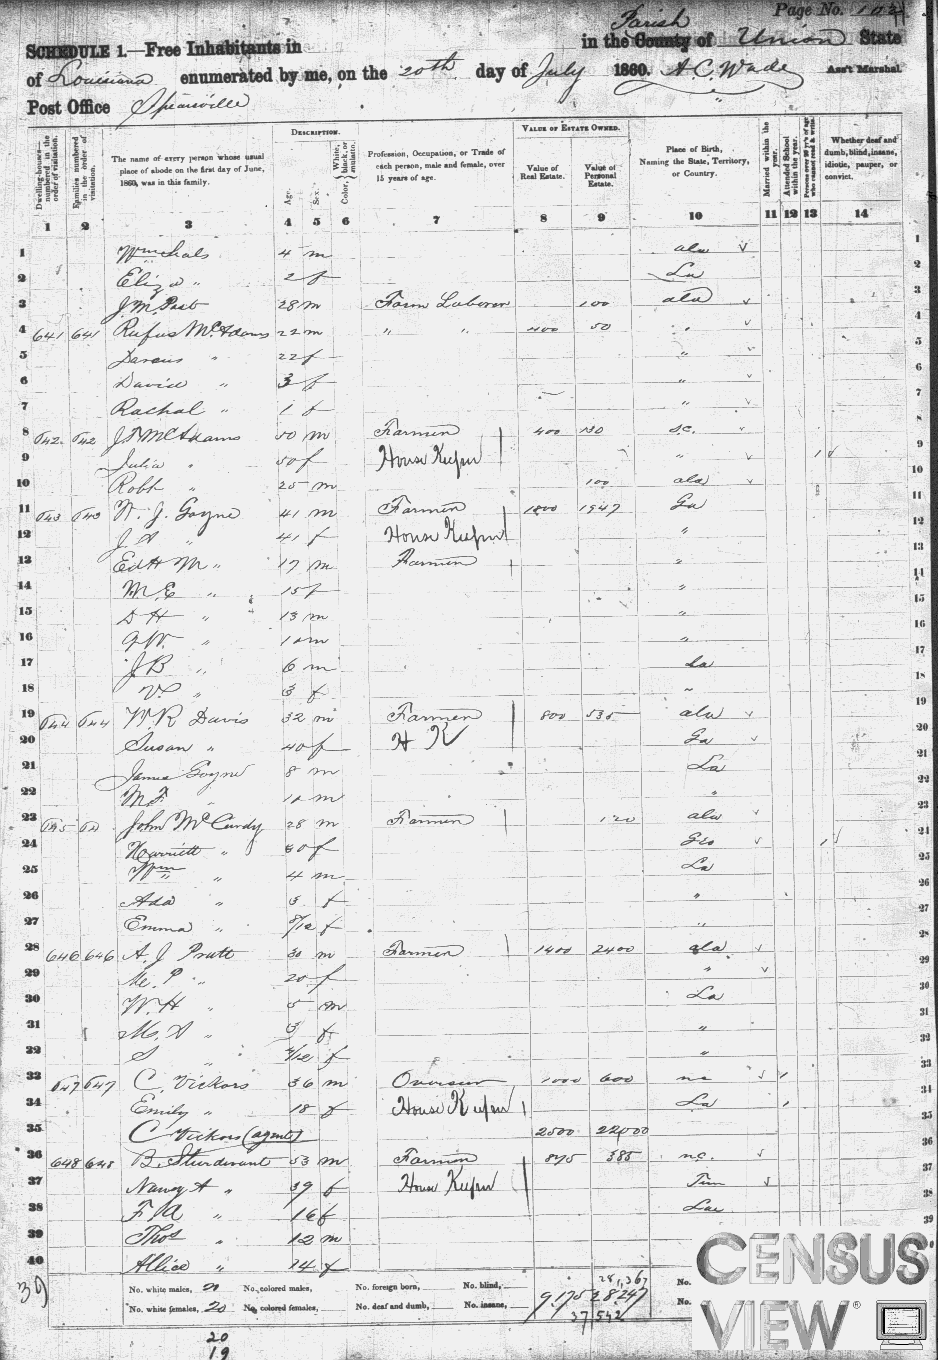 Page No. 103
SCHEDULE 1.—Free Inhabitants in in the County of Parish Union State
of Louisiana enumerated by me, on the 20th day of July 1860. A. C. Wade Ass't Marshal.
Post Office Spearsville
Dwelling-houses—numbered in the order of visitation.
Families numbered in the order of visitation.
The name of every person whose usual place of abode on the first day of June, 1860, was in this family.
DESCRIPTION.
Age.
Sex.
Color, White, black, or mulatto.
Profession, Occupation, or Trade of each person, male and female, over 15 years of age.
VALUE OF ESTATE OWNED.
Value of Real Estate.
Value of Personal Estate.
Place of Birth, Naming the State, Territory, or Country.
Married within the year.
Attended School within the year.
Persons over 20 y'rs of age who cannot read & write.
Whether deaf and dumb, blind, insane, idiotic, pauper, or convict.
1 2 3 4 5 6 7 8 9 10 11 12 13 14
1 4 m ala 1
2 Eliza " 2 f La 2
3 28 m Farm Laborer 100 ala 3
4 641 641 Rufus McAdams 22 m " " 400 50 " 4
5 Darcus " 22 f " 5
6 " 3 f " 6
7 Rachal " 1 f " 7
8 642 642 McAdams 50 m Farmer 400 130 S.C. 8
9 Julia " 50 f House Keeper " 1 9
10 Robt " 25 m 100 ala 10
11 643 643 W. J. Goyne 41 m Farmer 1800 1547 Ga 11
12 J. A. " 41 f House Keeper " 12
13 Ed H M " 17 m Farmer " 13
14 M. E. " 15 f " 14
15 D H " 13 m " 15
16 " 10 m " 16
17 J B " 6 m La 17
18 " 3 f " 18
19 644 644 W. R. Davis 32 m Farmer 800 535 ala 19
20 Susan " 40 f H K Ga 20
21 James Goyne 8 m La 21
22 M. F. " 10 m " 22
23 John McCurdy 28 m Farmer 120 ala 23
24 Harriett " 30 f Geo 1 24
25 Wm " 4 m La 25
26 Ada " 3 f " 26
27 Emma " f " 27
28 646 646 A. J. Pratt 30 m Farmer 1400 2400 ala 28
29 " 20 f " 29
30 W. H. " 5 m La 30
31 M. A " 3 f " 31
32 S " f " 32
33 647 647 C. Vickors 36 m Overseer 1000 600 nc 33
34 Emily " 18 f House Keeper La 34
35 C Vickors (agent) 2500 22000 35
36 648 648 B. Sturdivant 53 m Farmer 875 385 n.c. 36
37 Nancy A " 39 f House Keeper Tenn 37
38 F. A " 16 f La 38
39 Thos " 12 m 39
40 Allice " 14 f
No. white males, 20 No. colored males, No. foreign born, No. blind, 9,175 28,247 No.
No. white females, 20 No. colored females, No. deaf and dumb, No. insane, 37,542 No.
20
19
CENSUS
VIEW®